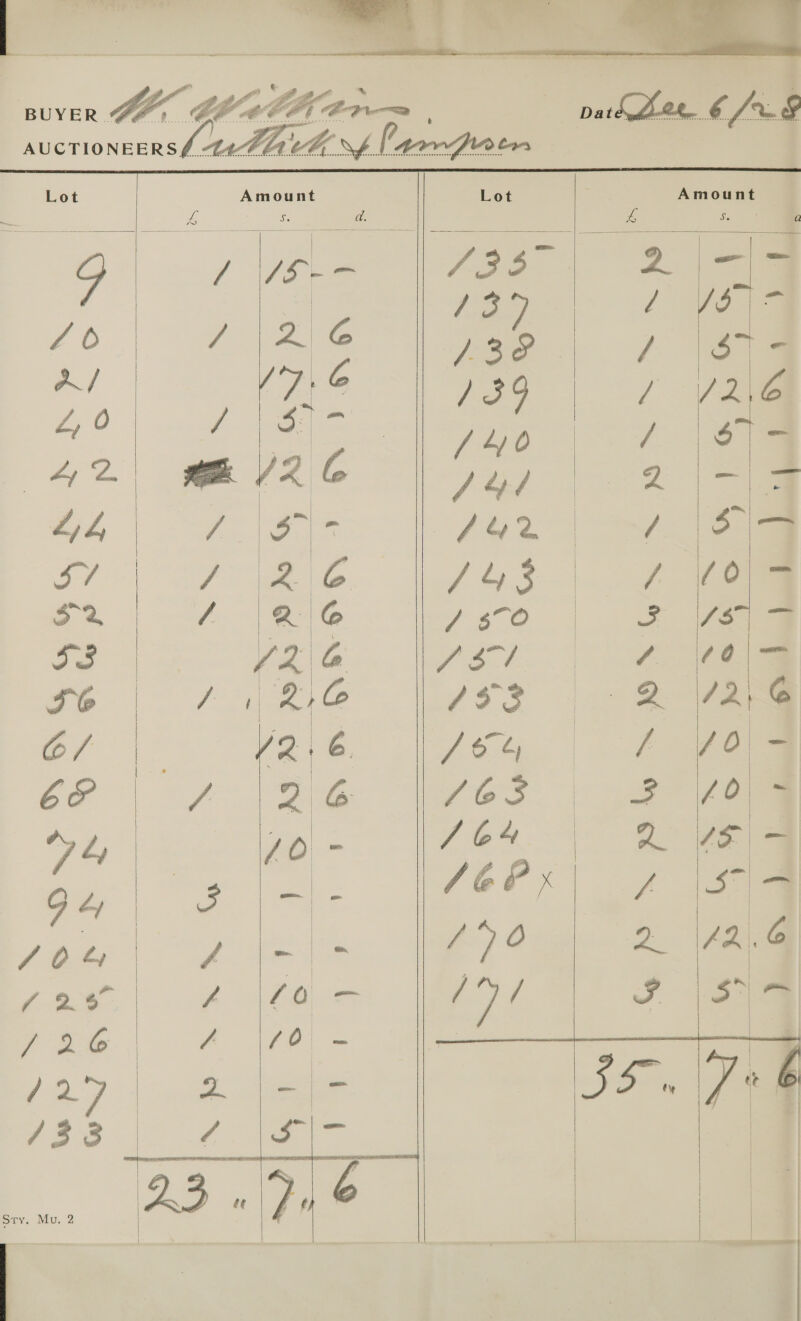 BUYER W. Williams Date Dec 6/28
AUCTIONEERS
Lot Amount Lot Amount
£ s. d. £ s. d
9 1 15 - - 135 2 - -
10 1 2 6 137 1 15 -
21 17.6 138 1 5 -
40 1 5 - 139 1 12.6
42 12 6 140 1 5 -
44 1 5 - 141 2 - -
51 1 2 6 142 1 5 -
52 1 2 6 143 1 10 -
53 12 6 150 3 15 -
56 1 2,6 151 1 10 -
61 12.6 153 2 12 6
68 1 2 6 154 1 10 -
74 10 - 163 3 10 -
94 3 - - 164 2 15 -
104 1 - - 168 x 1 5 -
125 1 10 - 170 2 12.6
126 1 10 - 171 3 5 -
127 2 - - 35 " 7 " 6
133 1 5 -
23 " 7 " 6
Sty. Mu. 2